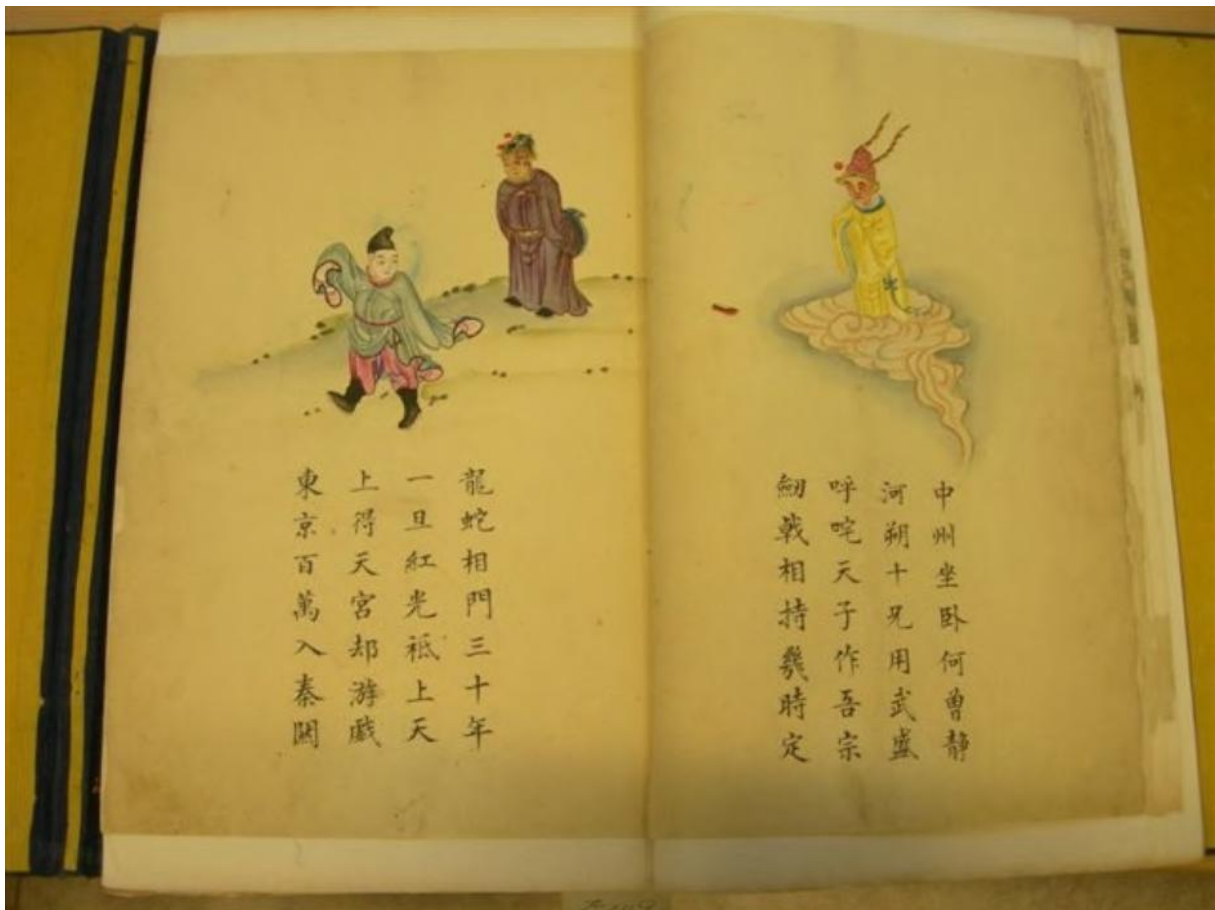 中州坐卧何曾静
河朔十兄用武盛
呼咤天子作吾宗
劒戟相持幾時定
龍蛇相門三十年
一旦紅光祇上天
上得天宮却游戲
東京百萬入秦關